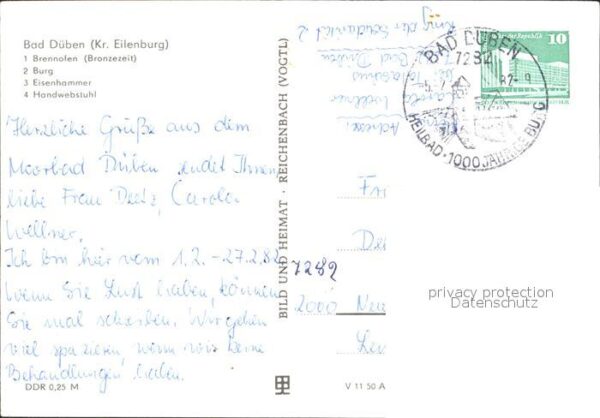 Bad Düben (Kr. Eilenburg)
1 Brennofen (Bronzezeit)
2 Burg
3 Eisenhammer
4 Handwebstuhl
Herzliche Grüße aus dem
Moorbad Düben sendet Ihnen
liebe Frau Dietz, Carola
Wellner.
Ich bin hier vom 1.2. – 27.2.82
Wenn Sie Lust haben, können
Sie mal schreiben. Wir gehen
viel spazieren, wenn wir keine
Behandlungen haben.
DDR 0,25 M
BILD UND HEIMAT · REICHENBACH (VOGTL)
V 11 50 A
Adresse:
Carola Wellner
Bad Düben
Ring der
BAD DÜBEN
7282
82-9
HEILBAD · 1000 JÄHRIGE BURG
der Republik
10
DDR
7282
Fr
De
2000 Neu
privacy protection
Datenschutz